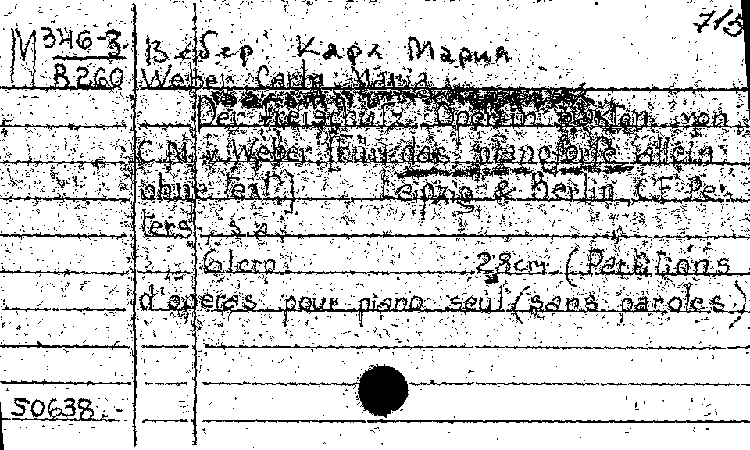 715
M 346-3 Вебер Карл Мария
B260 Weber Carla Maria
Der Freischütz. Oper in 3 akten von
C.M. v. Weber [für das pianoforte allein
ohne text] Leipzig & Berlin C.F. Pe-
ters, s.a.
61 cтр. 28cm (Partitions
d'operas pour piano seul (sans paroles)
50638.-